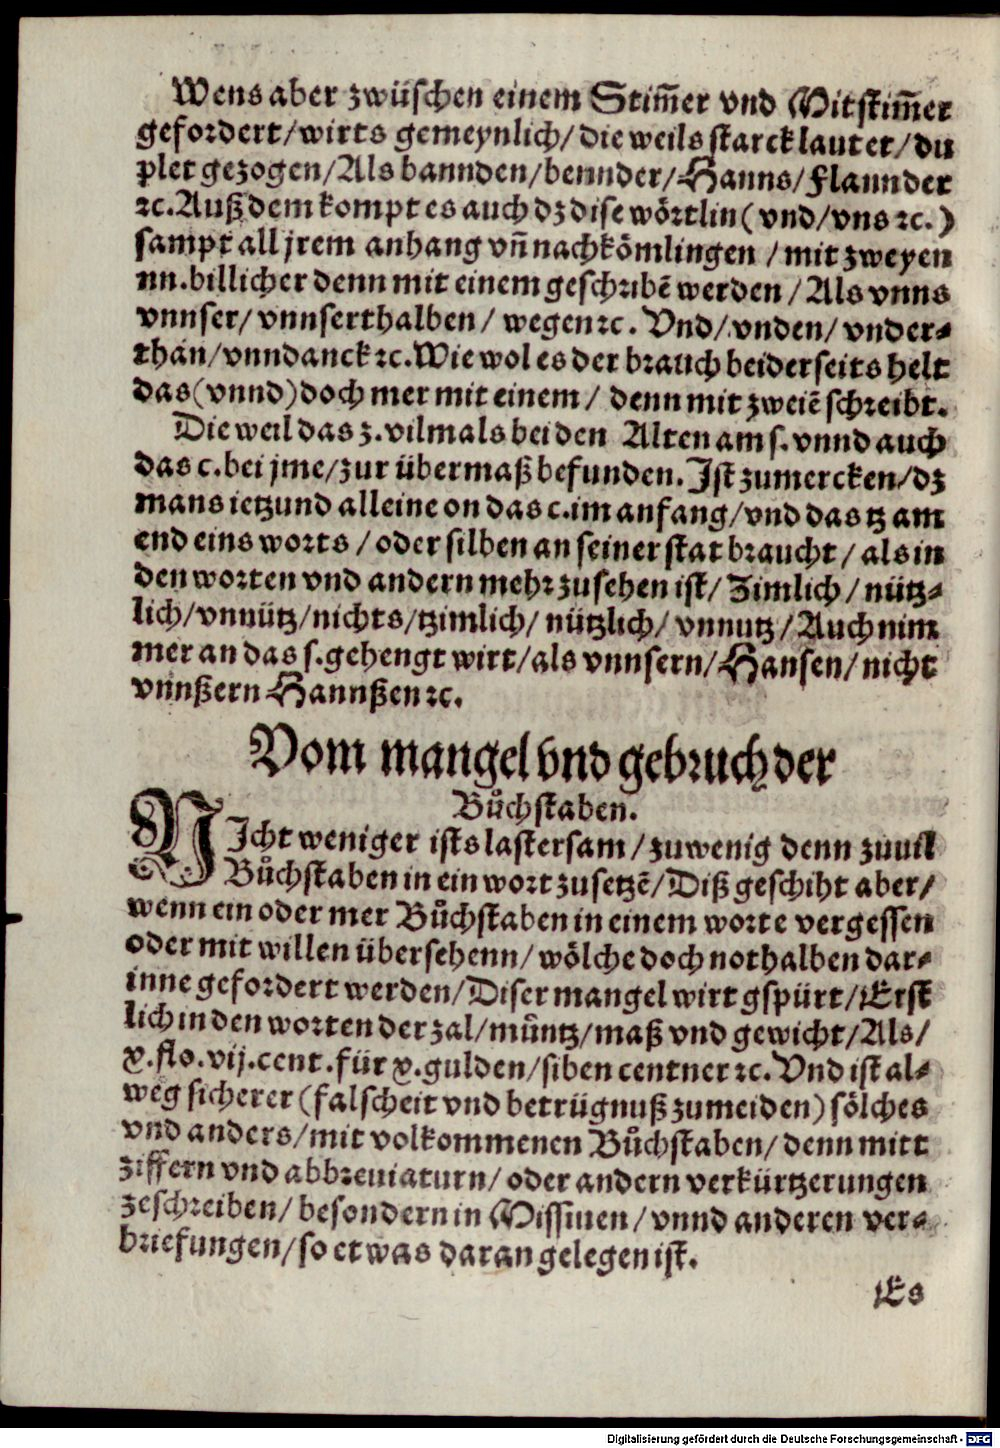 Wens aber zwüschen einem Stim̃er vnd Mitstim̃er
gefordert/wirts gemeynlich/die weils starck lautet/du
plet gezogen/Als bannden/bennder/Hanns/Flannder
ꝛc. Auß dem kompt es auch dz dise wörtlin (vnd/vns ꝛc.)
sampt all jrem anhang vñ nachkömlingen/mit zweyen
nn. billicher denn mit einem geschribẽ werden/Als vnns
vnnser/vnnserthalben/wegen ꝛc. Vnd/vnden/vnder⸗
than/vnndanck ꝛc. Wie wol es der brauch beiderseits helt
das (vnnd) doch mer mit einem/denn mit zweiẽ schreibt.
Die weil das z. vilmals bei den Alten am s. vnnd auch
das c. bei jme/zur übermaß befunden. Ist zumercken/dz
mans ietzund alleine on das c. im anfang/vnd das tz am
end eins worts/oder silben an seiner stat braucht/als in
den worten vnd andern mehr zusehen ist/Zimlich/nütz⸗
lich/vnnütz/nichts/tzimlich/nützlich/vnnutz/Auch nim
mer an das s. gehengt wirt/als vnnsern/Hansen/nicht
vnnßern Hannßen ꝛc.
Vom mangel vnd gebruch der
Bůchstaben.
NIcht weniger ists lastersam/zuwenig denn zuuil
Bůchstaben in ein wort zusetzẽ/Diß geschiht aber/
wenn ein oder mer Bůchstaben in einem worte vergessen
oder mit willen übersehenn/wölche doch nothalben dar⸗
inne gefordert werden/Diser mangel wirt gspürt/Erst
lich in den worten der zal/můntz/maß vnd gewicht/Als/
x. flo. vij. cent. für x. gulden/siben centner ꝛc. Vnd ist al⸗
weg sicherer (falscheit vnd betrügnuß zumeiden) sölches
vnd anders/mit volkommenen Bůchstaben/denn mitt
ziffern vnd abbreuiaturn/oder andern verkürtzerungen
zeschreiben/besondern in Missiuen/vnnd anderen ver⸗
briefungen/so etwas daran gelegen ist.
Es
Digitalisierung gefördert durch die Deutsche Forschungsgemeinschaft - DFG